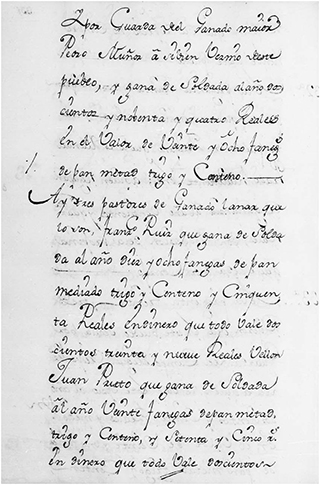 Y por Guarda del Ganado maior
Pedro Muñoz
pueblo, y gana de Soldada al año dos
cientos y nobenta y quatro Reales
en el Valor de Veinte y Ocho faneg.s
de pan metad trigo y Centeno.
Ay tres pastores de Ganado lanar que
lo son, fran.co Ruiz que gana de Solda
da al año diez y ocho fanegas de pan
mediado trigo y Centeno y Cinquen
ta Reales en dinero que todo Vale dos
cientos treinta y nueve Reales Vellon
Juan Prieto que gana de Soldada
al año Veinte fanegas de pan metad,
trigo y Centeno, y Setenta y Cinco r.s
en dinero que todo Vale doscientos